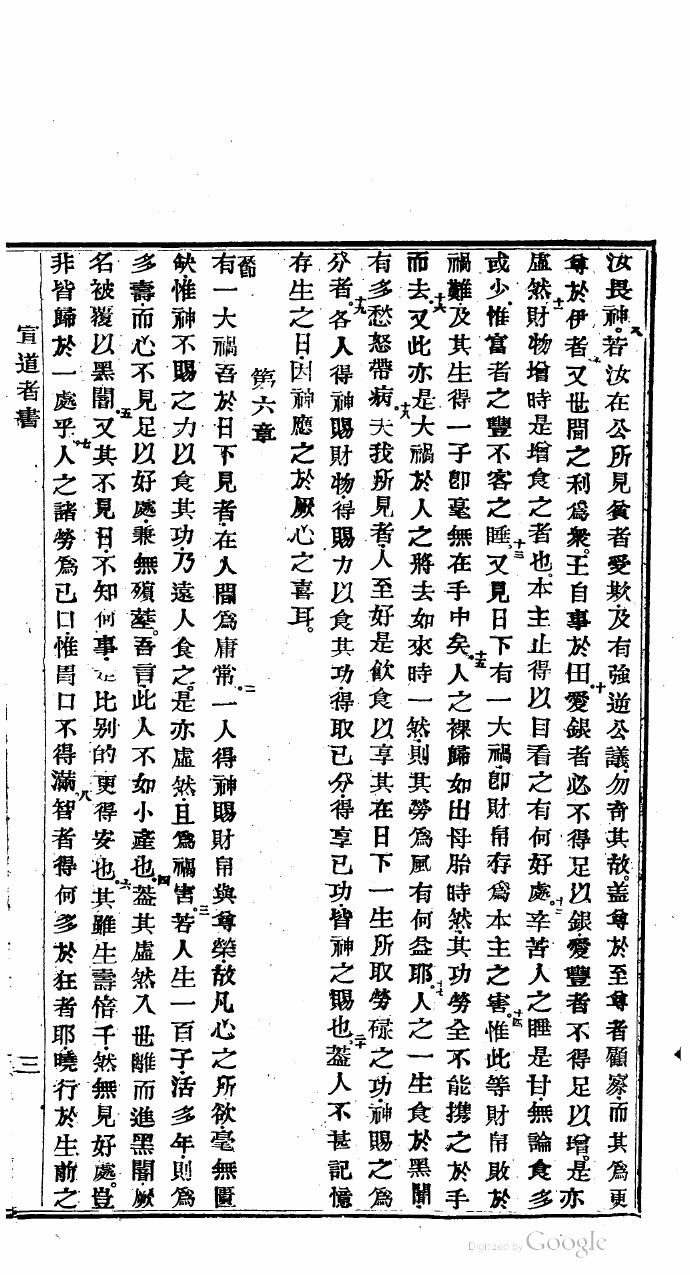 汝畏神。八若汝在公所見貧者受欺及有強逆公議勿奇其故。盖尊於至尊者顧察而其為更
尊於伊者九又世間之利為衆。王自事於田十愛銀者必不得足以銀愛豐者不得足以增。是亦
虛然十一財物增時是增食之者也。本主止得以目看之有何好處。十二辛苦人之睡是甘無論食多
或少惟富者之豐不容之睡。十三又見日下有一大禍即財帛存為本主之害。十四惟此等財帛敗於
禍難及其生得一子卽毫無在手中矣。十五人之裸歸如出母胎時然其功勞全不能携之於手
而去。十六又此亦是大禍於人之將去如來時一然則其勞為風有何益耶。十七人之一生食於黑闇
有多愁怒帶病十八夫我所見者人至好是飲食以享其在日下一生所取勞碌之功神賜之為
分者。十九各人得神賜財物得賜力以食其功得取已分得享已功皆神之賜也。二十葢人不甚記憶
存生之日因神應之於厥心之喜耳。
第六章
節有一大禍吾於日下見者在人間為庸常。二一人得神賜財帛與尊榮故凡心之所欲毫無匱
缺惟神不賜之力以食其功乃遠人食之。是亦虛然且為禍害。三若人生一百子活多年則為
多壽而心不見足以好處兼無殯塟。吾言此人不如小產也。四葢其虛然入世離而進黑闇厥
名被覆以黑闇五又其不見日不知何事是比别的更得安也。六其雖生壽倍千然無見好處。豈
非皆歸於一處乎。七人之諸勞為已口惟胃口不得滿八智者得何多於狂者耶曉行於生前之
宣道者書
三
Digitized by Google